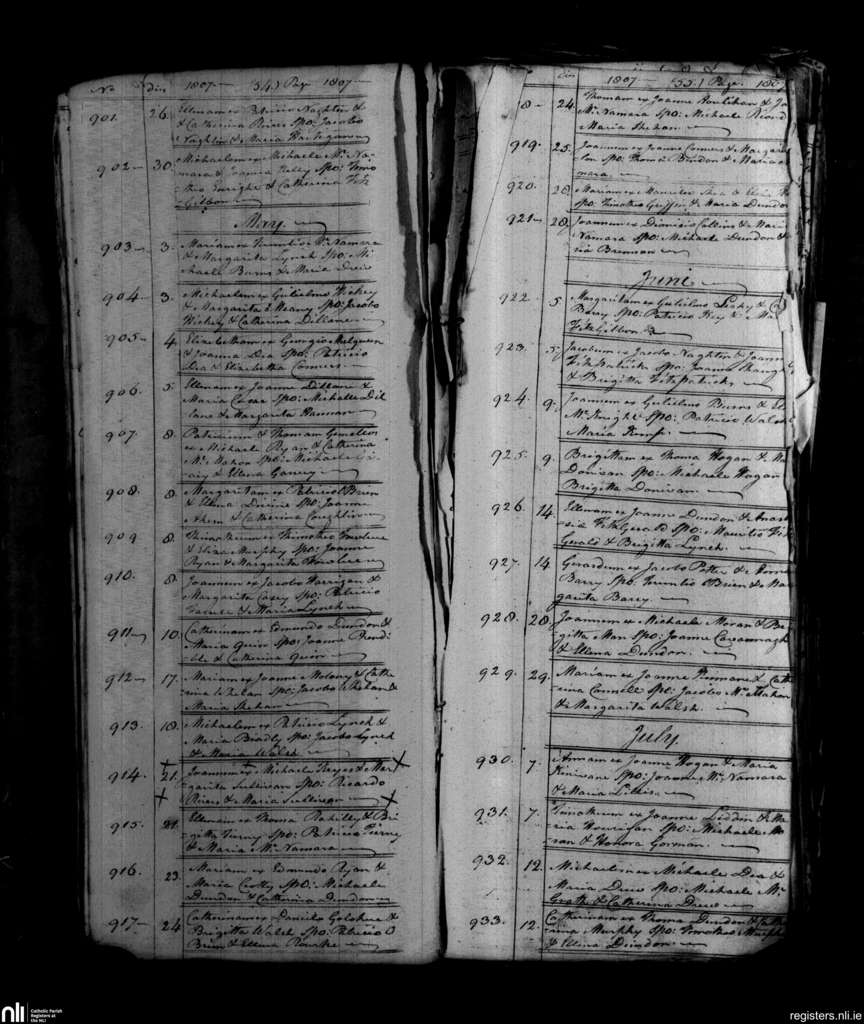 No Dies 1807 — (54) Page 1807 —
901. 26. Ellenam ex Patricio Naghten &
Catherina Spo: Jacobo
Naghtin & Maria
902 — 30. Michaelem ex Michaele Mc Na-
mara & Joanna Kelly Spo: Timo
theo Enright & Catherina Fitz
Gibbon
May.
903 — 3. Mariam ex Terentio Mc Namara
& Margarita Lynch Spo: Mi
chaele Burns & Maria Drew
904 — 3. Michaelem ex Gulielmo Hickey
& Margarita Heany Spo: Jacobo
Hickey & Catherina Dillane
905 — 4. Elizabetham ex Georgio
& Joanna Dea Spo: Patricio
Dea & Elizabetha Conners
906. 5. Ellenam ex Joanne Dillane &
Maria Spo: Michaele Dil
lane & Margarita Hannan
907. 8. Patricium & Thomam Gemellos
ex Michaele Ryan & Catherina
Mc Mahon Spo: Michaele
& Ellena Garvey
908. 8. Margaritam ex Patricio OBrien
& Ellena Spo: Joanne
Ahern & Catherina Coughlin
909 8. ex Thimotheo
& Eliza Murphy Spo: Joanne
Ryan & Margarita
910. 8 Joannem ex Jacobo Harrigan &
Margarita Casey Spo: Patricio
& Maria Lynch
911 — 10. Catherinam ex Edmundo Dundon &
Maria Quin Spo: Joanne
& Catherina Quin
912 — 17. Mariam ex Joanne Molony & Cathe
rina Whelan Spo: Jacobo Whelan &
Maria Shehan
913. 18. Michaelem ex Patricio Lynch &
Maria Bradly Spo: Jacobo Lynch
& Maria Walsh
914 21. Joannem ex Michaele Keyes & Mar
garita Sullivan Spo: Ricardo
& Maria Sullivan
915. 21. Ellenam ex Thoma Rahilly & Bri
gitta Spo: Patricio
& Maria Mc Namara
916. 23. Mariam ex Edmundo Ryan &
Maria Spo: Michaele
Dundon & Catherina Dundon
917 — 24. Catherinam ex Daniele &
Brigitta Walsh Spo: Patricio O
Brien & Ellena Rourke
Dies 1807 — (55) Page.
8 — 24. Thomam ex Joanne Houlihan & Jo
Mc Namara Spo: Michaele
Maria Shehan
919. 25. Joannem ex Joanne Conners & Margaret
Spo: Thoma Dundon & Maria
mara
920. 28. Mariam ex Mauritio Shea &
Spo: Timotheo Griffin & Maria Dundon
921 — 28. Joannem ex Dionisio Collins & Mari
Namara Spo: Michaele Dundon &
ria Brennan
June
922. 5. Margaritam ex Gulielmo &
Barry Spo: Patricio & Ma
Fitz Gibbon
923. 5. Jacobum ex Jacobo Naghten & Joanna
Fitz Patrick Spo: Joanne
& Brigitta Fitz Patrick
924. 9. Joannem ex Gulielmo Burns & El
Mc Knight Spo: Patricio Walsh
Maria
925. 9. Brigittam ex Thoma Hogan & Ma
Donivan Spo: Michaele Hogan
Brigitta Donivan
926 14. Ellenam ex Joanne Dundon & Anas
sia Fitz Gerald Spo: Mauritio Fitz
Gerald & Brigitta Lynch
927. 14. Gerardum ex Jacobo Potter & Honora
Barry Spo: Terentio OBrien & Mar
garita Barry
928. 28. Joannem ex Michaele Moran & Bri
gitta Man Spo: Joanne Cavannagh
& Ellena Dundon
929. 29. Mariam ex Joanne & Cath
rina Connell Spo: Jacobo Mc Mahon
& Margarita Walsh
July.
930. 7. Annam ex Joanne Hogan & Maria
Kinivane Spo: Joanne Mc Namara
& Maria Lillis
931. 7. Timotheum ex Joanne Liddon & Ma
ria Hourigan Spo: Michaele Mo
ran & Honora Gorman.
932. 12. Michaelem ex Michaele Dea &
Maria Drew Spo: Michaele Mc
Grath & Catherina Drew
933. 12. Catherinam ex Thoma Dundon & Cathe
rina Murphy Spo: Timotheo Murphy
& Ellena Dundon
nli
Catholic Parish
Registers at
the NLI
registers.nli.ie